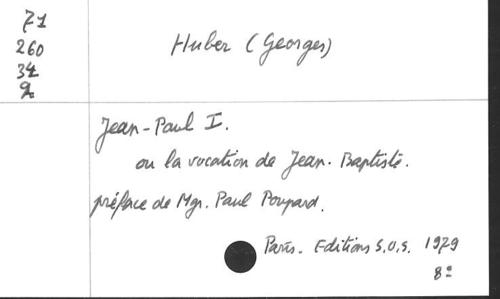 71
260
34
2
Huber (Georges)
Jean-Paul I.
ou la vocation de Jean-Baptiste.
préface de Mgr. Paul Poupard.
Paris. Editions S.O.S. 1979
8º